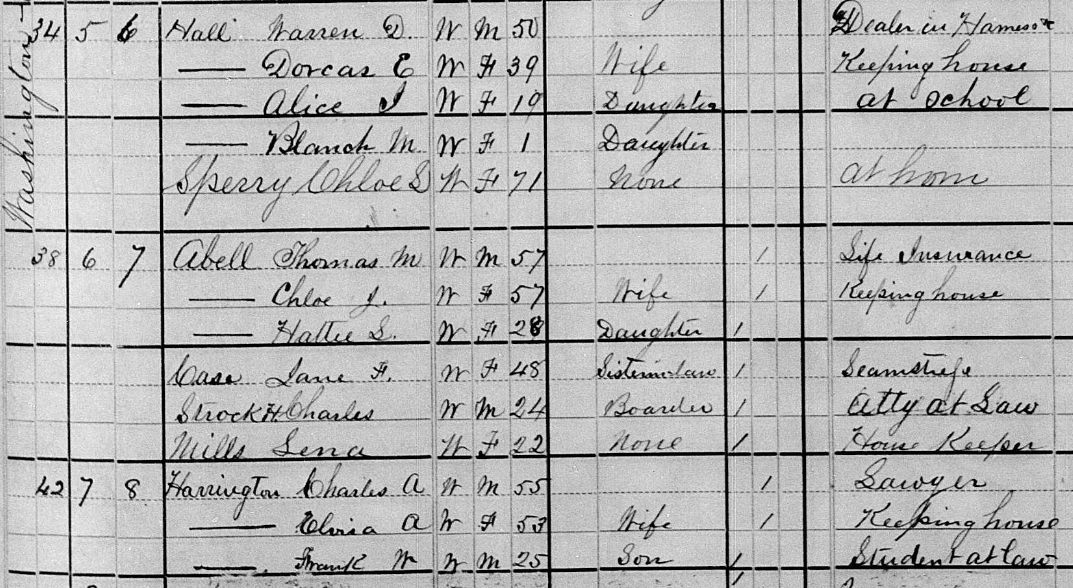 Washington
34 5 6 Hall Warren D. W M 50 Dealer in Harness &c
— Dorcas E W F 39 Wife Keeping house
— Alice I W F 19 Daughter at School
— Blanch M W F 1 Daughter
Sperry Chloe S W F 71 None at hom
38 6 7 Abell Thomas M W M 57 1 Life Insurance
— Chloe J. W F 57 Wife 1 Keeping house
— Hattie S. W F 28 Daughter 1
Case Jane F. W F 48 Sisterinlaw 1 Seamstress
Strock H. Charles W M 24 Boarder 1 Atty at Law
Mills Lena W F 22 None 1 House Keeper
42 7 8 Harrington Charles A W M 55 1 Lawyer
— Elvisa A W F 53 Wife 1 Keeping house
— Frank W W M 25 Son 1 Student at law
1